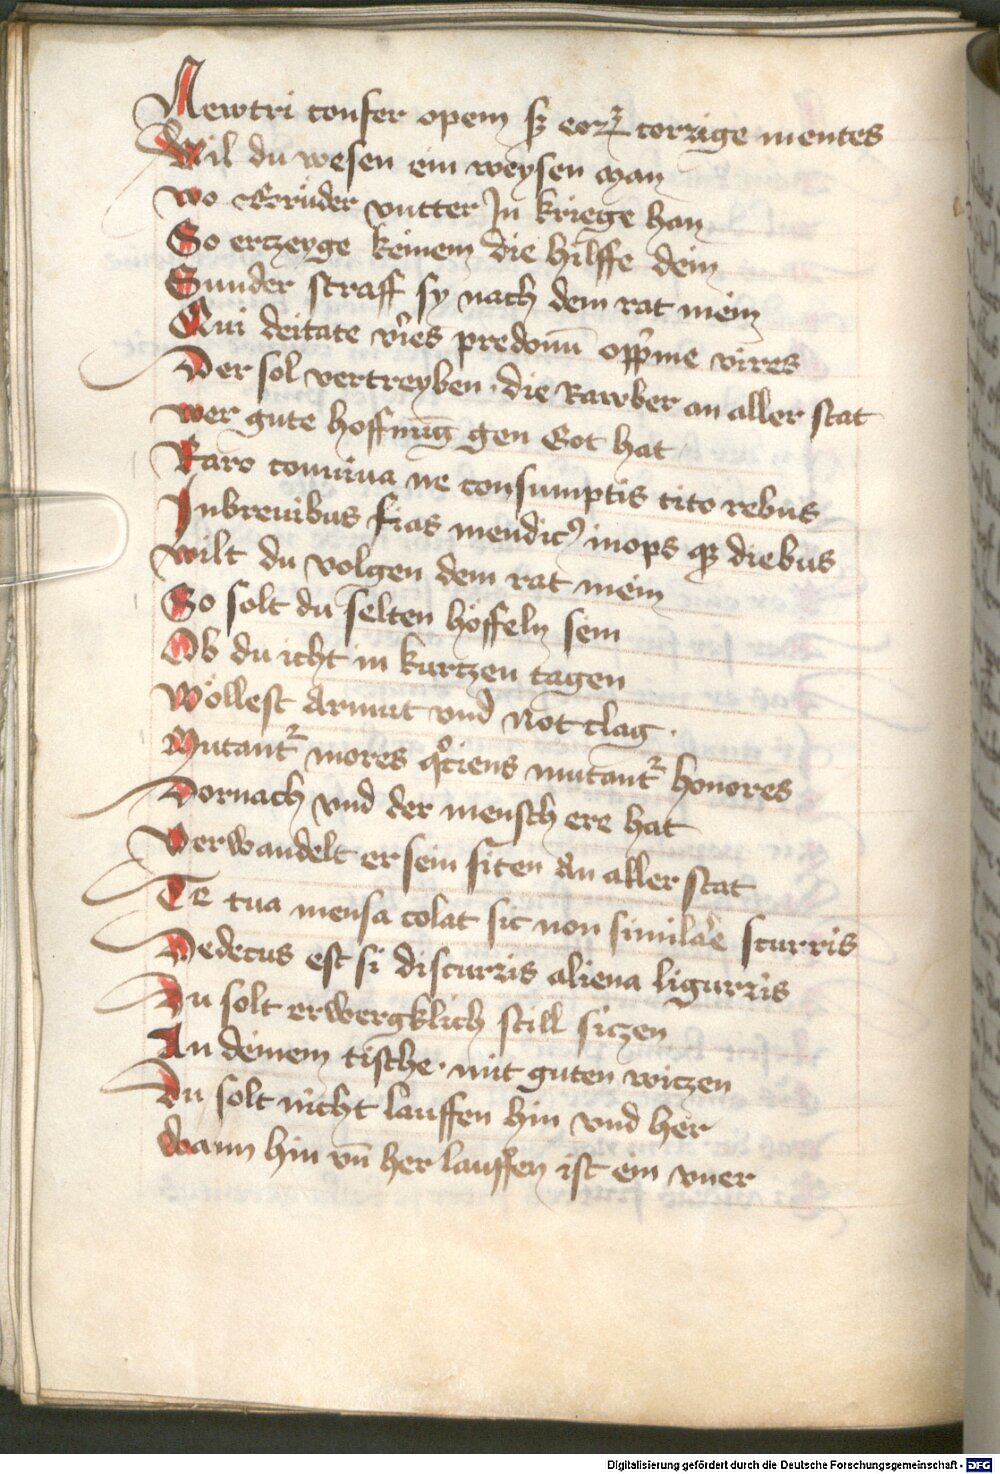 Newtri confer opem sꝫ eoꝝ corrige mentes
Wil du wesen ein weysen man
wo Brüder vntter In kriege han
So ertzeyge keinem die hilffe dein
Sunder straff sy nach dem rat mein
Qui deitate vires predonū opp̄me vires
Der sol vertreyben · die Rawber an aller stat
wer gute hoffnūg gen Got hat
Raro conuiua ne consumptis cito rebus
Inbreuibus fias mendicꝰ inops qꝫ diebus
wilt du volgen dem rat mein
So solt du selten höffeln sein
Ob du icht in kurtzen tagen
Wöllest Armut vnd Not clag ·
Mutantᷣ mores qͦciens mutantᷣ honores
Dornach vnd der mensch ere hat
Verwandelt er sein siten An aller stat
Te tua mensa colat sic non similare scurris
Dedecus est si discurris aliena ligurris
Du solt erwergklich still siczen
An deinem tische · mit guten wiczen
Du solt nicht lauffen hin vnd her
Wann hin vn̄ her lauffen ist ein vner
Digitalisierung gefördert durch die Deutsche Forschungsgemeinschaft - DFG